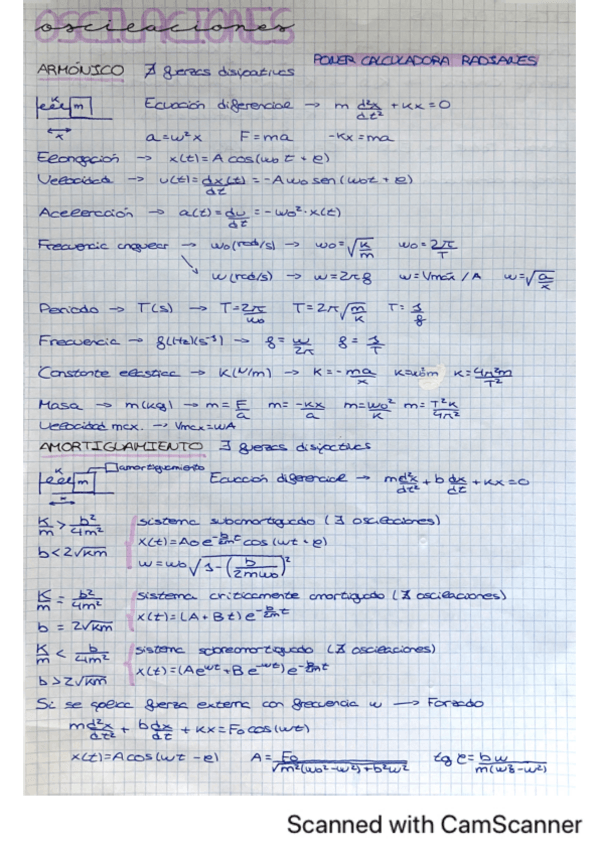 OSCILACIONES
oscilaciones
PONER CALCULADORA RADIANES
ARMÓNICO ∄ fuerzas disipativas
K
m
x
Ecuación diferencial → m d²x/dt² + Kx = 0
a = ω²x F = ma -Kx = ma
Elongación → x(t) = A cos(ω₀t + φ)
Velocidad → v(t) = dx(t)/dt = -Aω₀ sen(ω₀t + φ)
Aceleración → a(t) = dv/dt = -ω₀² · x(t)
Frecuencia angular → ω₀ (rad/s) → ω₀ = √(K/m) ω₀ = 2π/T
ω (rad/s) → ω = 2πf ω = Vmáx / A ω = √(a/x)
Periodo → T(s) → T = 2π/ω₀ T = 2π√(m/K) T = 1/f
Frecuencia → f(Hz)(s⁻¹) → f = ω/2π f = 1/T
Constante elástica → K(N/m) → K = -ma/x K = ω₀²m K = 4π²m/T²
Masa → m(kg) → m = F/a m = -Kx/a m = ω₀²/K m = T²K/4π²
Velocidad max. → Vmax = ωA
AMORTIGUAMIENTO ∃ fuerzas disipativas
K
m
amortiguamiento
x
Ecuación diferencial → m d²x/dt² + b dx/dt + Kx = 0
K/m > b²/4m² sistema subamortiguado (∃ oscilaciones)
b < 2√Km x(t) = A₀ e^(-b/2m t) cos(ωt + φ)
ω = ω₀ √(1 - (b/2mω₀)²)
K/m = b²/4m² sistema críticamente amortiguado (∄ oscilaciones)
b = 2√Km x(t) = (A + Bt) e^(-b/2m t)
K/m < b/4m² sistema sobreamortiguado (∄ oscilaciones)
b > 2√Km x(t) = (A e^(ωt) + B e^(-ωt)) e^(-b/2m t)
Si se aplica fuerza externa con frecuencia ω → Forzado
m d²x/dt² + b dx/dt + Kx = F₀ cos(ωt)
x(t) = A cos(ωt - φ) A = F₀/√(m²(ω₀² - ω²) + b²ω²) tg φ = bω/m(ω₀² - ω²)
Scanned with CamScanner